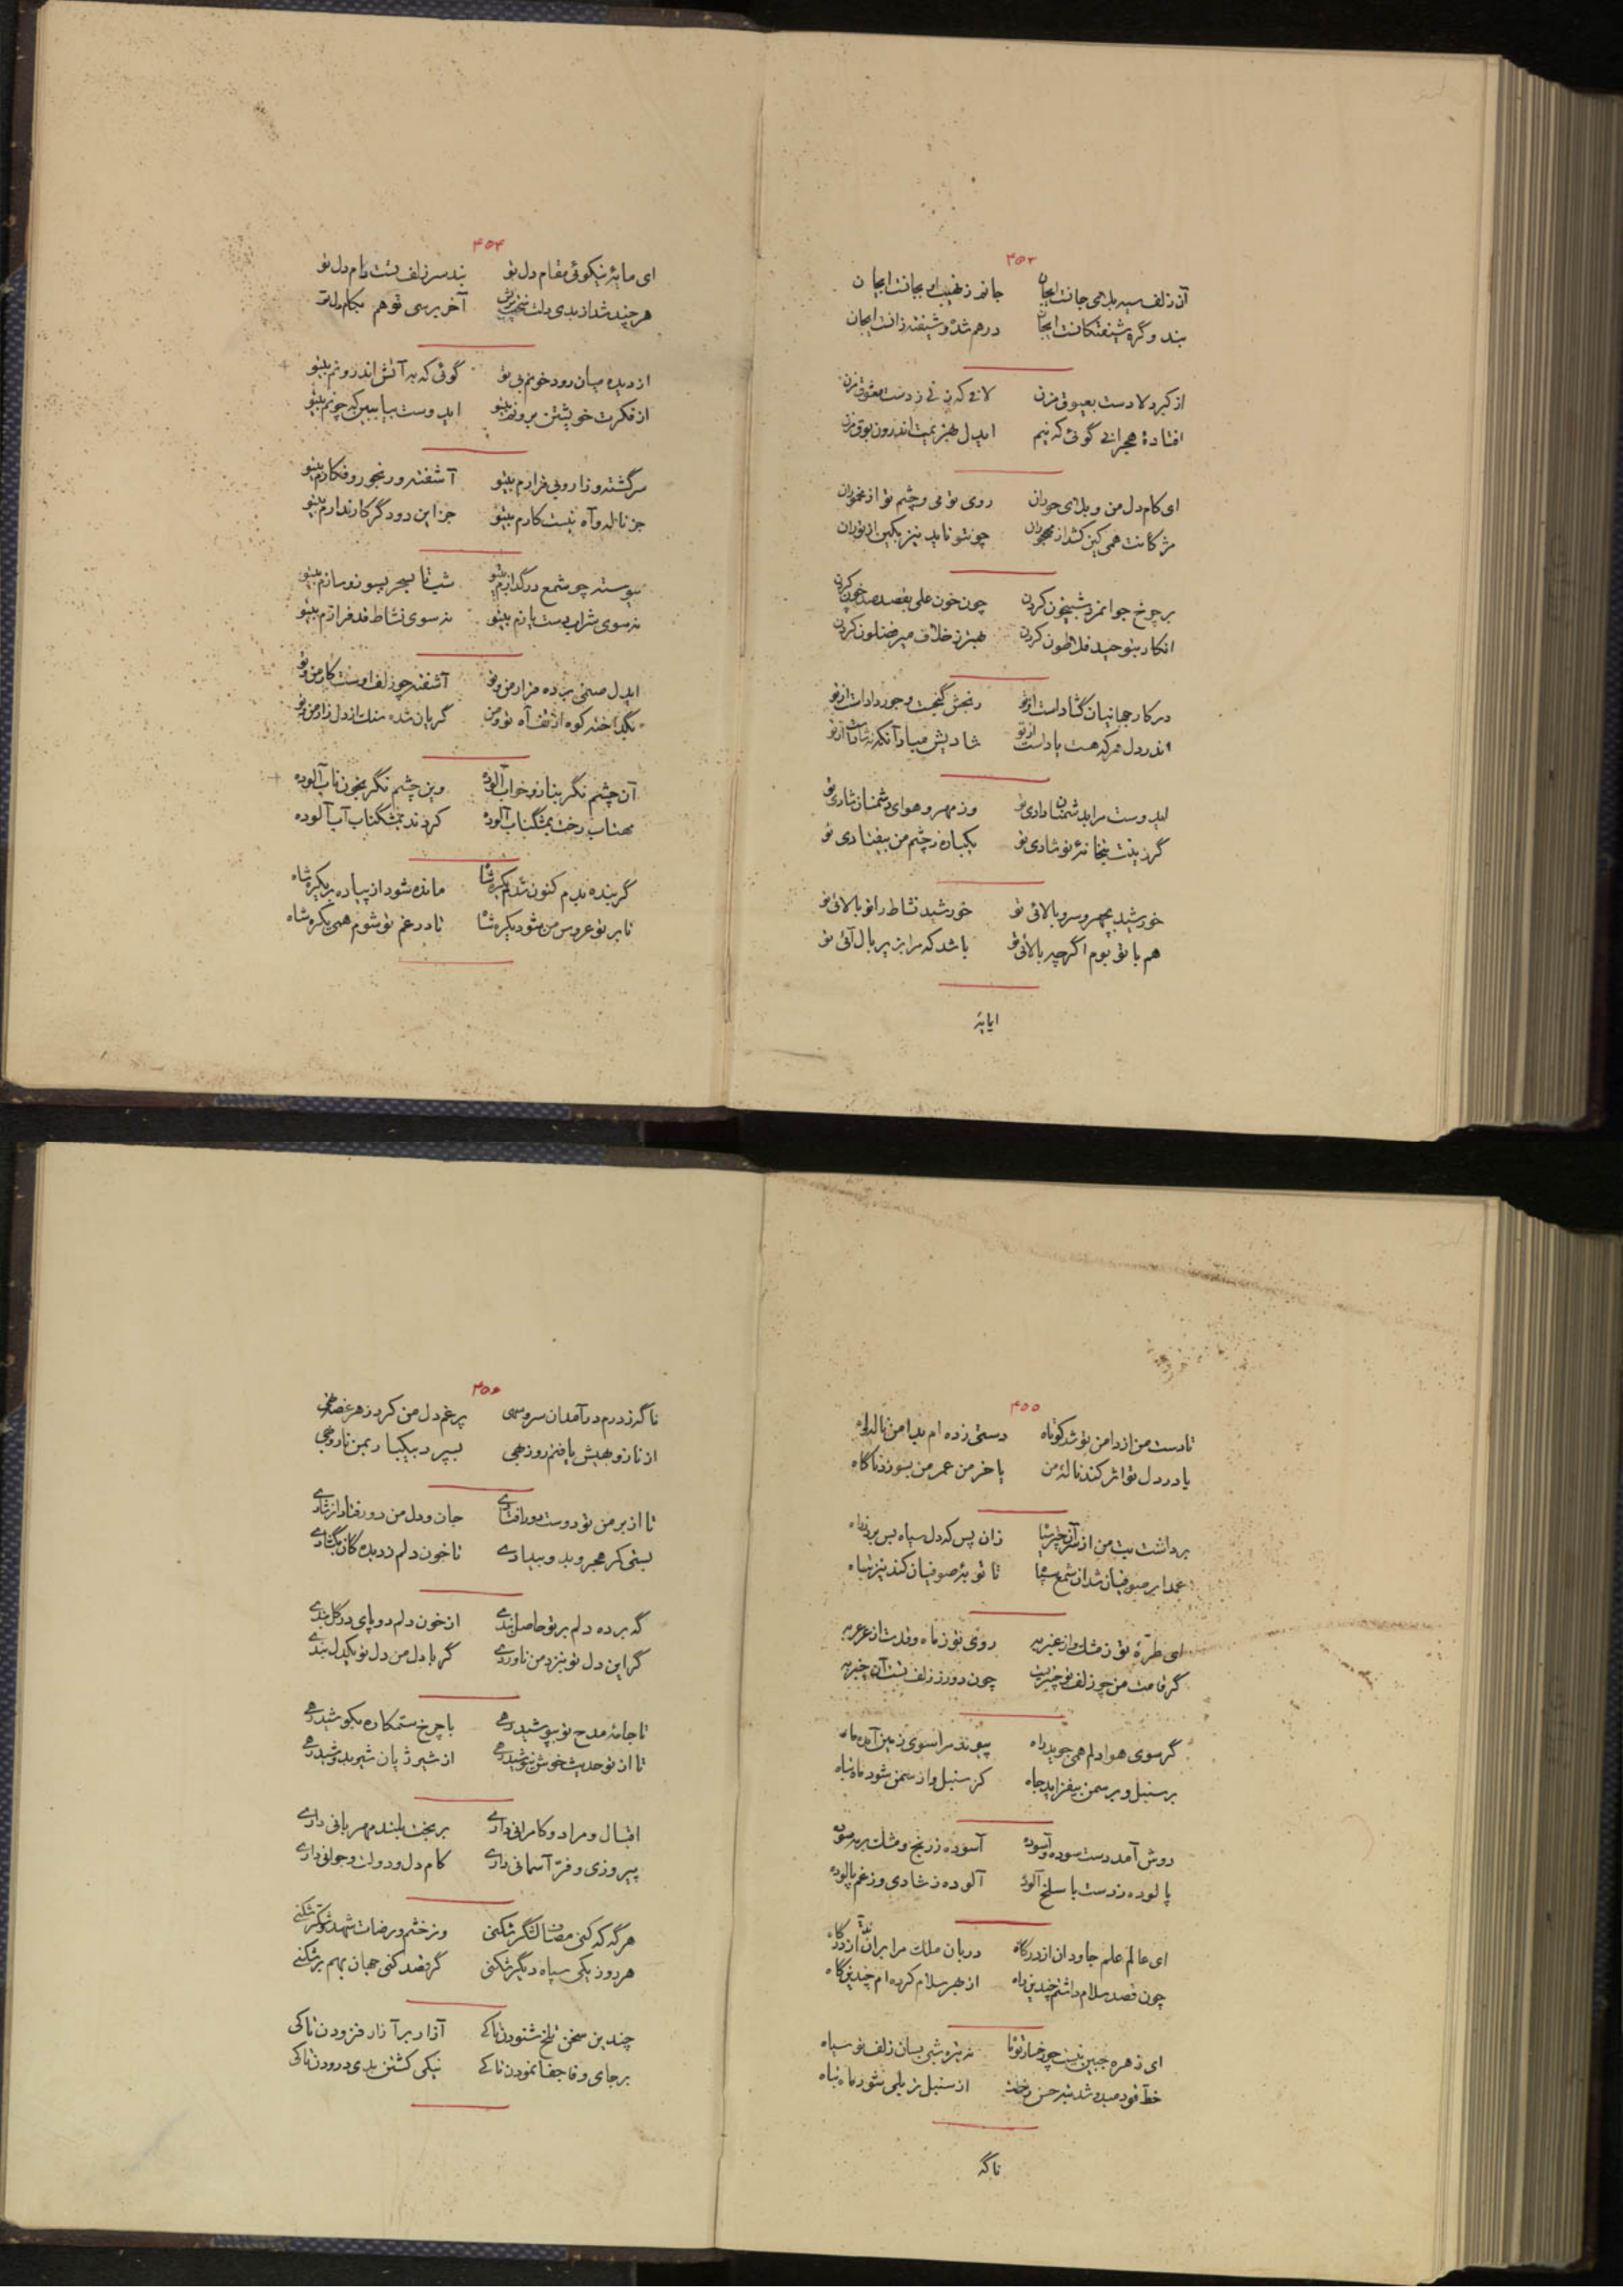 ۴۵۳
آن زلف سیه بلای جانست ایجان جانم ز نهیب او بجانست ایجان
بند و گره شیفتگانست ایجان درهم شده و شیفته زانست ایجان
از کبر دلا دست بعیوق مزن
افتادهٔ هجرانی گوئی که نیم
ای کام دل من و بلای حوران روی تو می و چشم تو از مخموران
مژگانت همی کین کشد از مهجوران چون تو ناید نیز بکین از توران
بر چرخ جوانمرد شبیخون کردن چون خون علی بقصد صد خون کردن
انکار بتوحید فلاطون کردن بهتر ز خلاف میر فضلون کردن
در کار جهانیان گشاد است از تو رنجش گنجست و جور داد است از تو
اندر دل هر که هست یاد است از تو شادیش مباد آنکه نه شاد است از تو
ایدوست مرا بدشمنان دادی تو وز مهر و هوای دشمنان شادی تو
گر زینت بتخانهٔ نوشادی تو یکباره ز چشم من بیفتادی تو
خورشید بچهر و سرو بالائی تو خورشید نشاط را تو بالائی تو
هم با تو بوم اگر چه بالائی تو باشد که مرا بزیر بال آئی تو
ایمایهٔ
۴۵۴
ای مایهٔ نیکوئی مقام دل تو بند سر زلف تست دام دل تو
هر چند شد از بدی دلت آخر برسی تو هم بکام دل تو
از دیده میان رود خونم بی تو گوئی که به آتش اندرونم بیتو
از فکرت خویشتن برونم بیتو ایدوست بیا ببین که چونم بیتو
سرگشته و زار و بی قرارم بیتو آشفته و رنجور و فکارم بیتو
جز ناله و آه نیست کارم بیتو جز این دو دگر کار ندارم بیتو
پیوسته چو شمع در گدازم بیتو شب تا بسحر بسوز و سازم بیتو
نه سوی شراب دست یازم بیتو نه سوی نشاط قد فرازم بیتو
ایدل صنمی برده قرار من و تو آشفته چو زلف اوست کار من و تو
بگداخته کوه از تف آه تو و من گریان شده سنگ از دل زار من و تو
آن چشم نگر بناز و خواب آلوده وین چشم نگر بخون ناب آلوده
مهتاب رخت بمشگناب آلوده کردند بمشگناب آب آلوده
گر بنده بدم کنون شدم یکره شاه مانده شود از پیاده بر یکره شاه
تا بر تو عروس من شود یکره شاه تا در غم تو شوم همی یکره شاه
۴۵۵
تا دست من از دامن تو شد کوتاه دستی زده ام بدامن ناله و آه
یا در دل تو اثر کند نالهٔ من یا خرمن عمر من بسوزد ناگاه
برداشت بت من از سر آن چتر سیاه زان پس که دل سپاه بس برد ز راه
عمدا بر صوفیان شد آن شمع سپاه تا توبهٔ صوفیان کند نیز تباه
ای طرّهٔ تو ز مشک و از عنبر به روی تو ز ماه و قدت از عرعر به
گر قامت من چو زلف تو چنبریست چون دور ز زلف تست آن چنبر به
گر سوی هوا دلم همی جوید راه پیوند مرا سوی زمین آمد ماه
بر سنبل و بر سمن بیفزاید جاه کز سنبل و از سمن شود ماه تباه
دوش آمد دست سوده و آسوده آسوده ز رنج و مشک بر مه سوده
پالوده ز دست با سلح آلوده آلوده ز شادی و ز غم پالوده
ای عالم علم جاودان از درگاه دربان ملک مرا براند از درگاه
چون قصد سلام داشتم چندین راه از بهر سلام کرده ام چندین گاه
ای زهره جبین نیست چو رخسار تو ماه نه تیره شبی بسان زلف تو سیاه
از سنبل تر بلی شود ماه تباه
ناگه
۴۵۶
ناگه ز درم درآمد آن سرو سهی پر غم دل من کرد ز هر غصه تهی
از ناز و بهیش یافتم روز بهی بسپرد بیکبار بمن ناز و بهی
تا از بر من تو دوست دور افتادی جان و دل من دور فتاد از شادی
بستی کمر هجر و بد و بیدادی تا خون دلم ز دیدگان بگشادی
گه برده دلم بر تو حاصل بندی از خون دلم دو پای در گل بندی
گر این دل تو نیز من ناوردی گر با دل من دل تو یکدل بندی
تا جامهٔ مدح تو بپوشید رهی با چرخ ستمکاره بکوشید رهی
تا از تو حدیث خوش نیوشید رهی از شیر ژیان شیر بدوشید رهی
اقبال و مراد و کامرانی داری بر بخت بلند مهربانی داری
پیروزی و فرّ آسمانی داری کام دل و دولت و جوانی داری
هرگه که کنی مصاف لشگر شکنی وز خشم و رضات شهد و شکّر شکنی
هر روز یکی سپاه دیگر شکنی گر قصد کنی جهان بهم بر شکنی
چندین سخن تلخ شنودن تا کی آزار بر آزار فزودن تا کی
بر جای وفا جفا نمودن تا کی نیکی کشتن بدی درودن تا کی